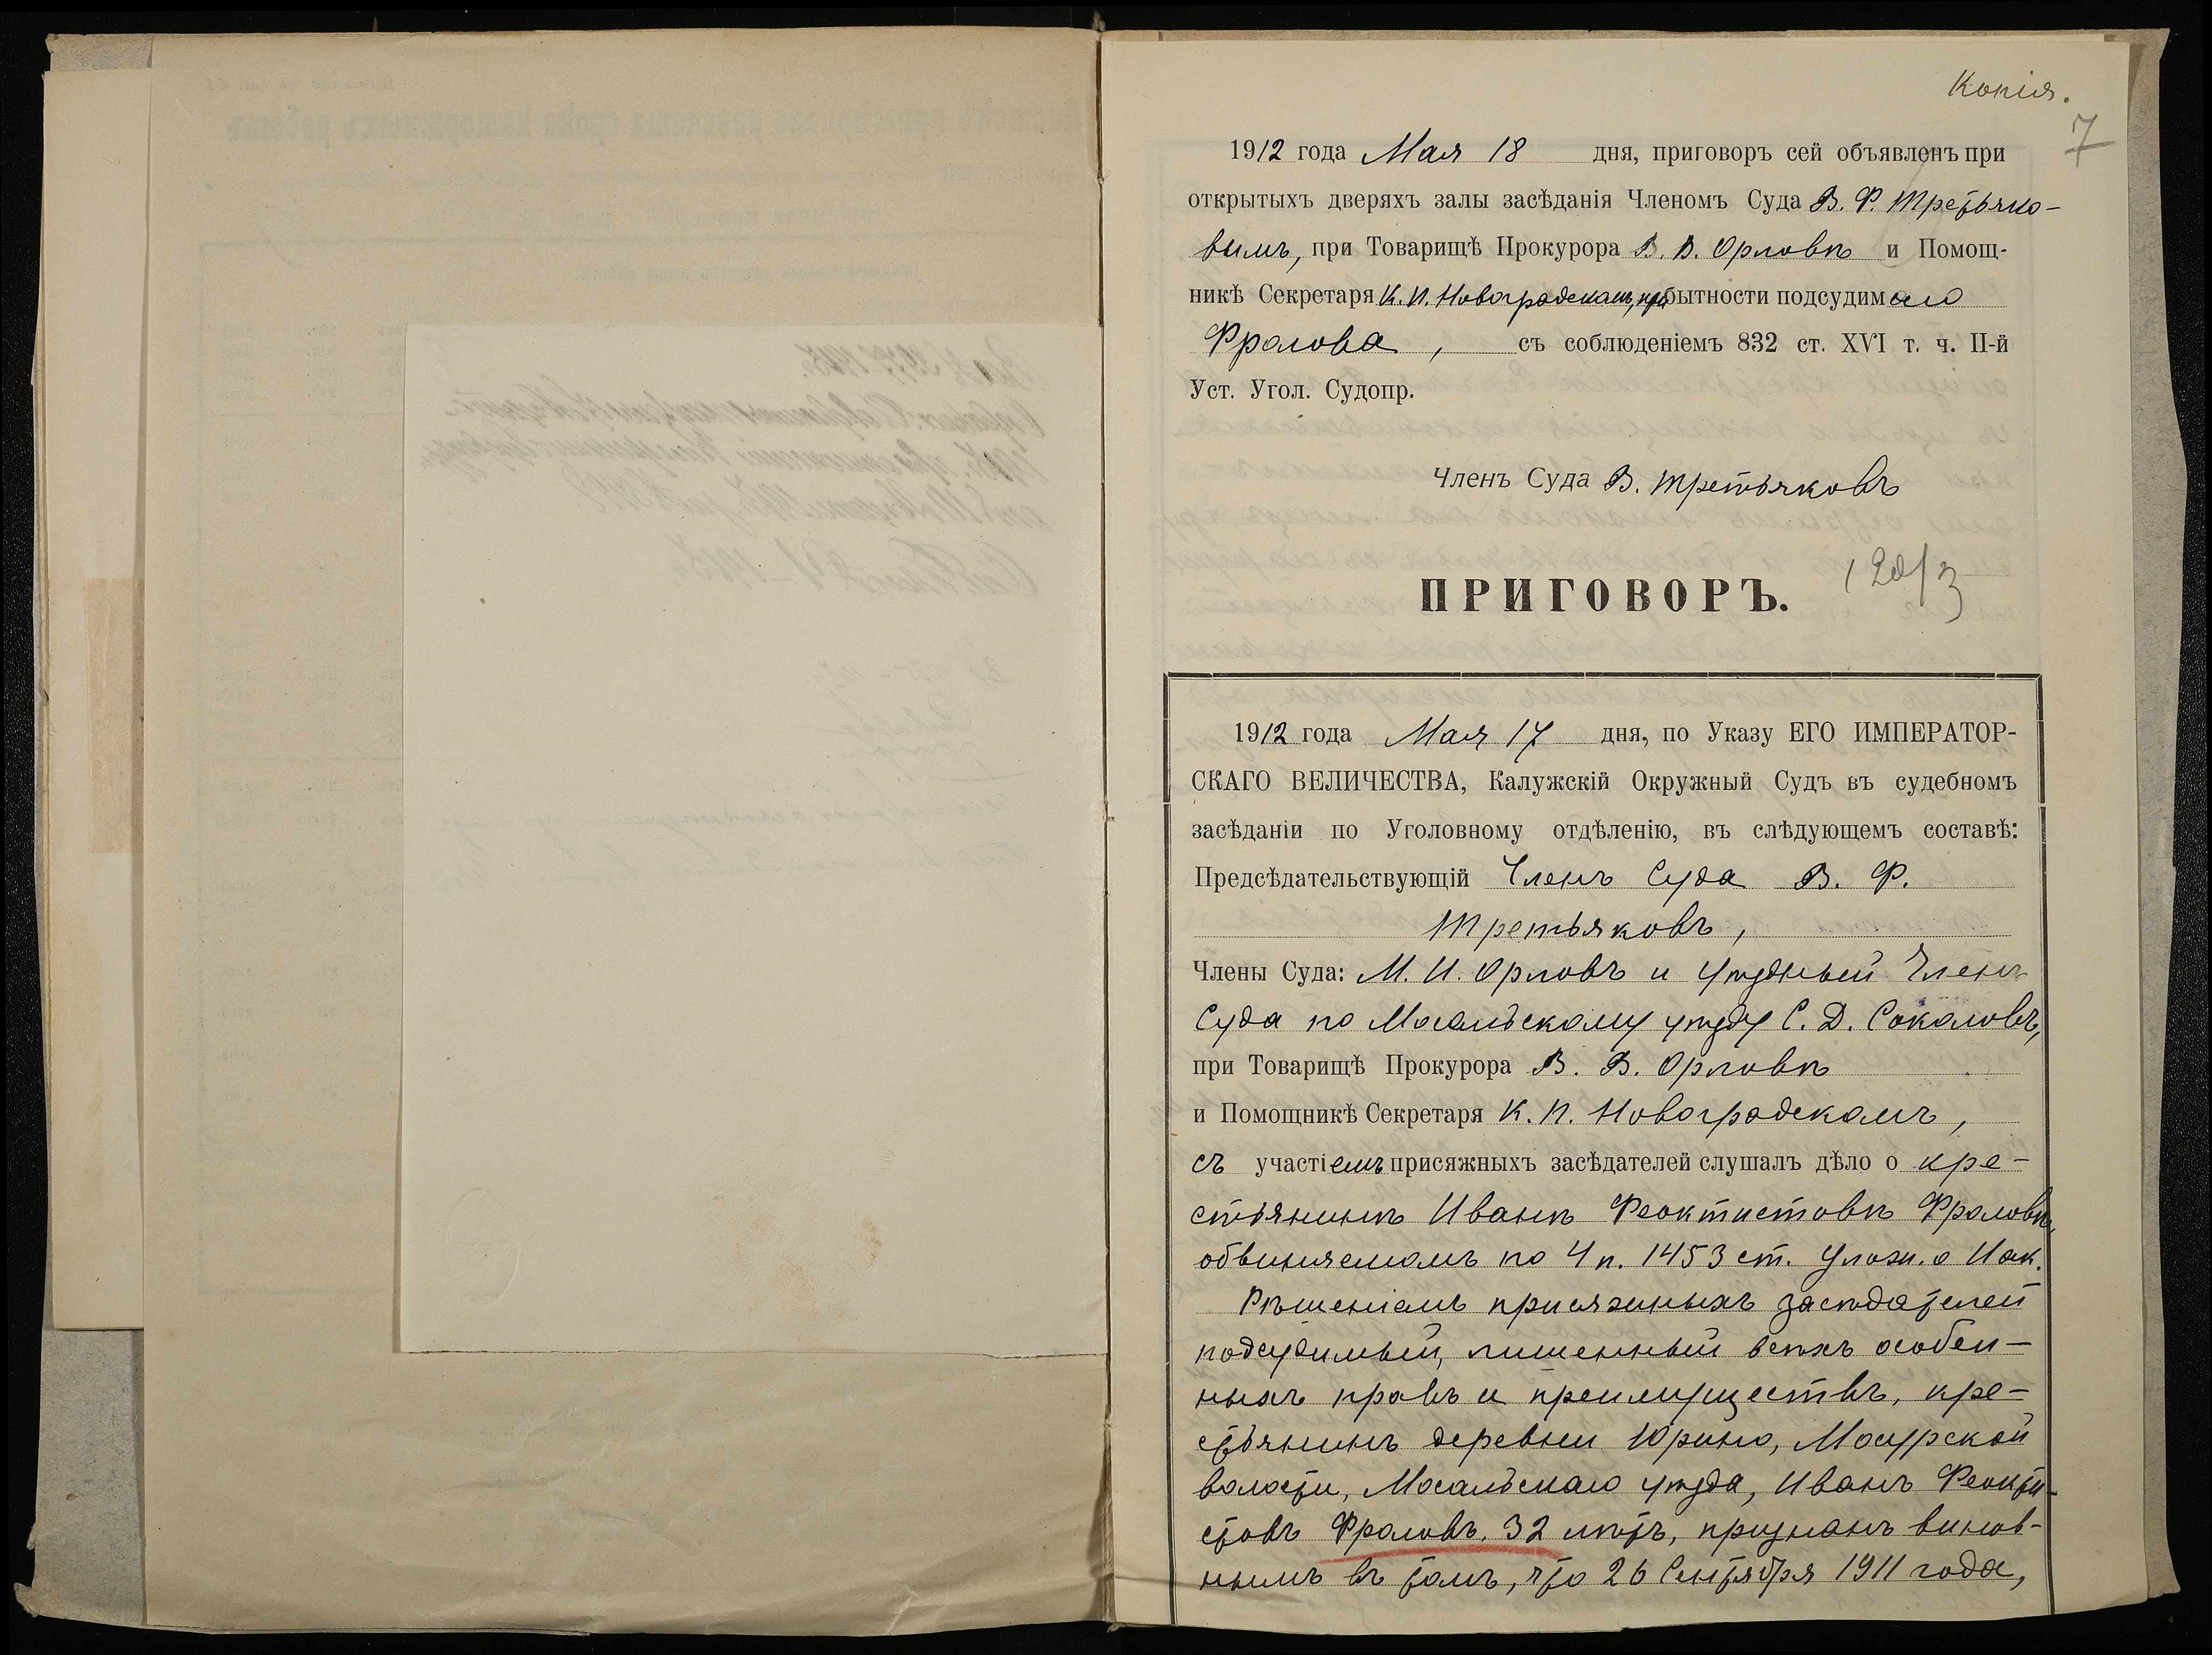 Копія.
7
1912 года Мая 18 дня, приговоръ сей объявленъ при
открытыхъ дверяхъ залы засѣданія Членомъ Суда В. Ф. Третьяко-
вымъ, при Товарищѣ Прокурора В. В. Орловѣ и Помощ-
никѣ Секретаря К. П. Новоградскомъ, при бытности подсудимаго
Фролова, съ соблюденіемъ 832 ст. XVI т. ч. II-й
Уст. Угол. Судопр.
Членъ Суда В. Третьяковъ
ПРИГОВОРЪ.
1912 года Мая 17 дня, по Указу ЕГО ИМПЕРАТОР-
СКАГО ВЕЛИЧЕСТВА, Калужскій Окружный Судъ въ судебномъ
засѣданіи по Уголовному отдѣленію, въ слѣдующемъ составѣ:
Предсѣдательствующій Членъ Суда В. Ф.
Третьяковъ,
Члены Суда: М. И. Орловъ и Уѣздный Членъ
Суда по Мосальскому уѣзду С. Д. Соколовъ,
при Товарищѣ Прокурора В. В. Орловѣ
и Помощникѣ Секретаря К. П. Новоградскомъ,
съ участіемъ присяжныхъ засѣдателей слушалъ дѣло о кре-
стьянинѣ Иванѣ Феоктистовѣ Фроловѣ,
обвиняемомъ по 4 п. 1453 ст. Улож. о Нак.
Рѣшеніемъ присяжныхъ засѣдателей
подсудимый, лишенный всѣхъ особен-
ныхъ правъ и преимуществъ, кре-
стьянинъ деревни Юрино, Мосурской
волости, Мосальскаго уѣзда, Иванъ Феокти-
стовъ Фроловъ, 32 лѣтъ, признанъ винов-
нымъ въ томъ, что 26 Сентября 1911 года,